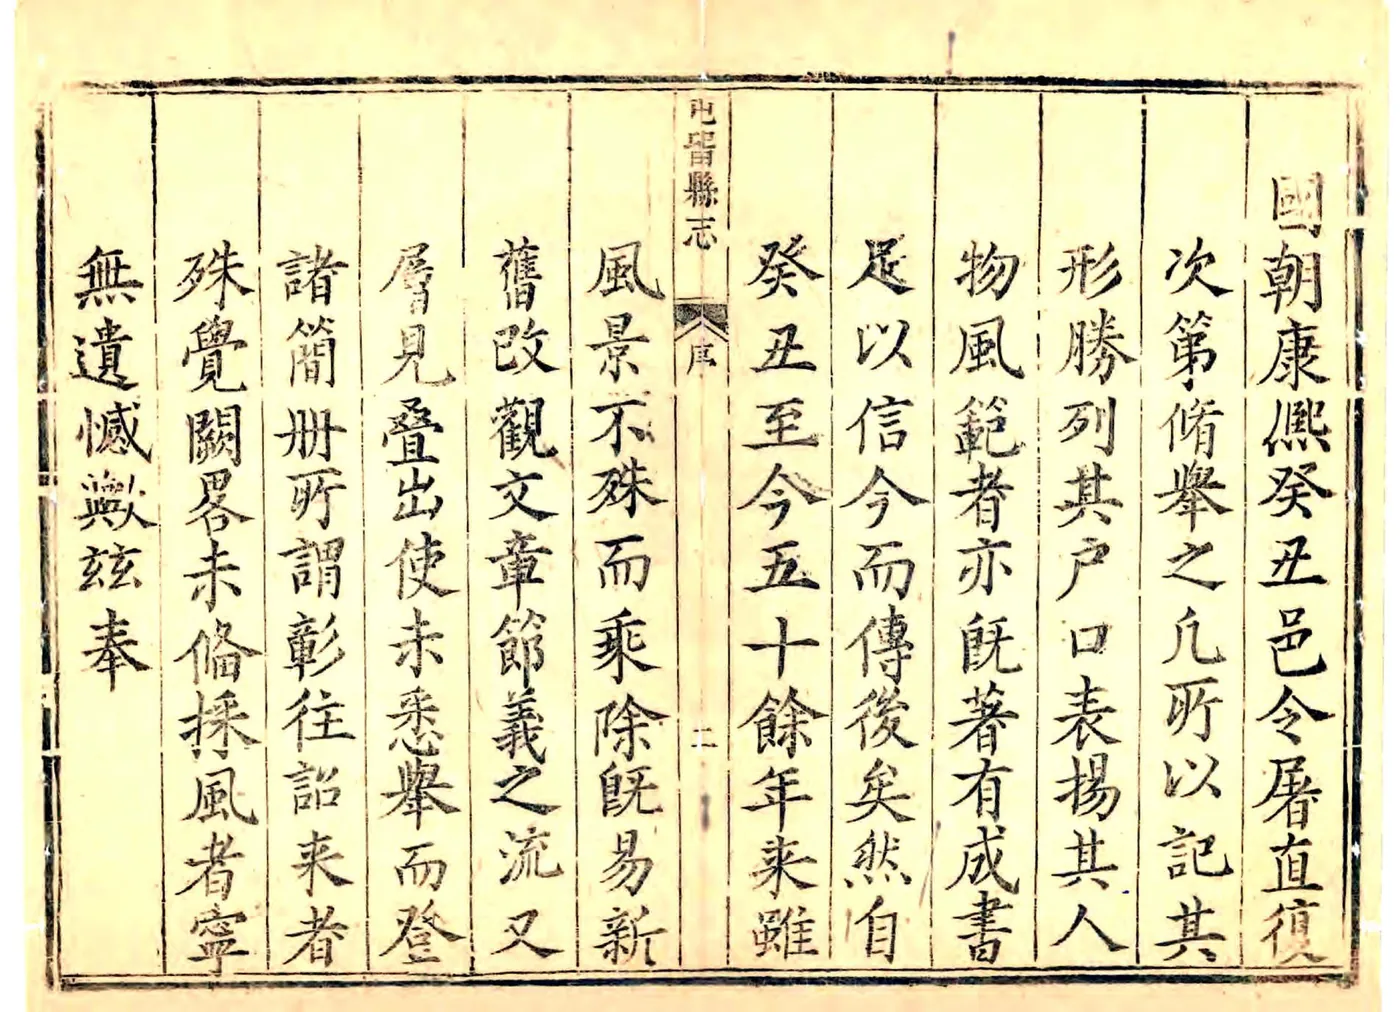 國朝康熈癸丑邑令屠直復
次第脩舉之凢所以記其
形勝列其户口表揚其人
物風範者亦旣著有成書
足以信今而傳後矣然自
癸丑至今五十餘年来雖
屯留縣志
序
二
風景不殊而乘除旣易新
舊改觀文章節義之流又
層見叠出使未悉舉而登
諸簡册所謂彰往詔来者
殊覺闕畧未偹採風者寧
無遺憾歟兹奉